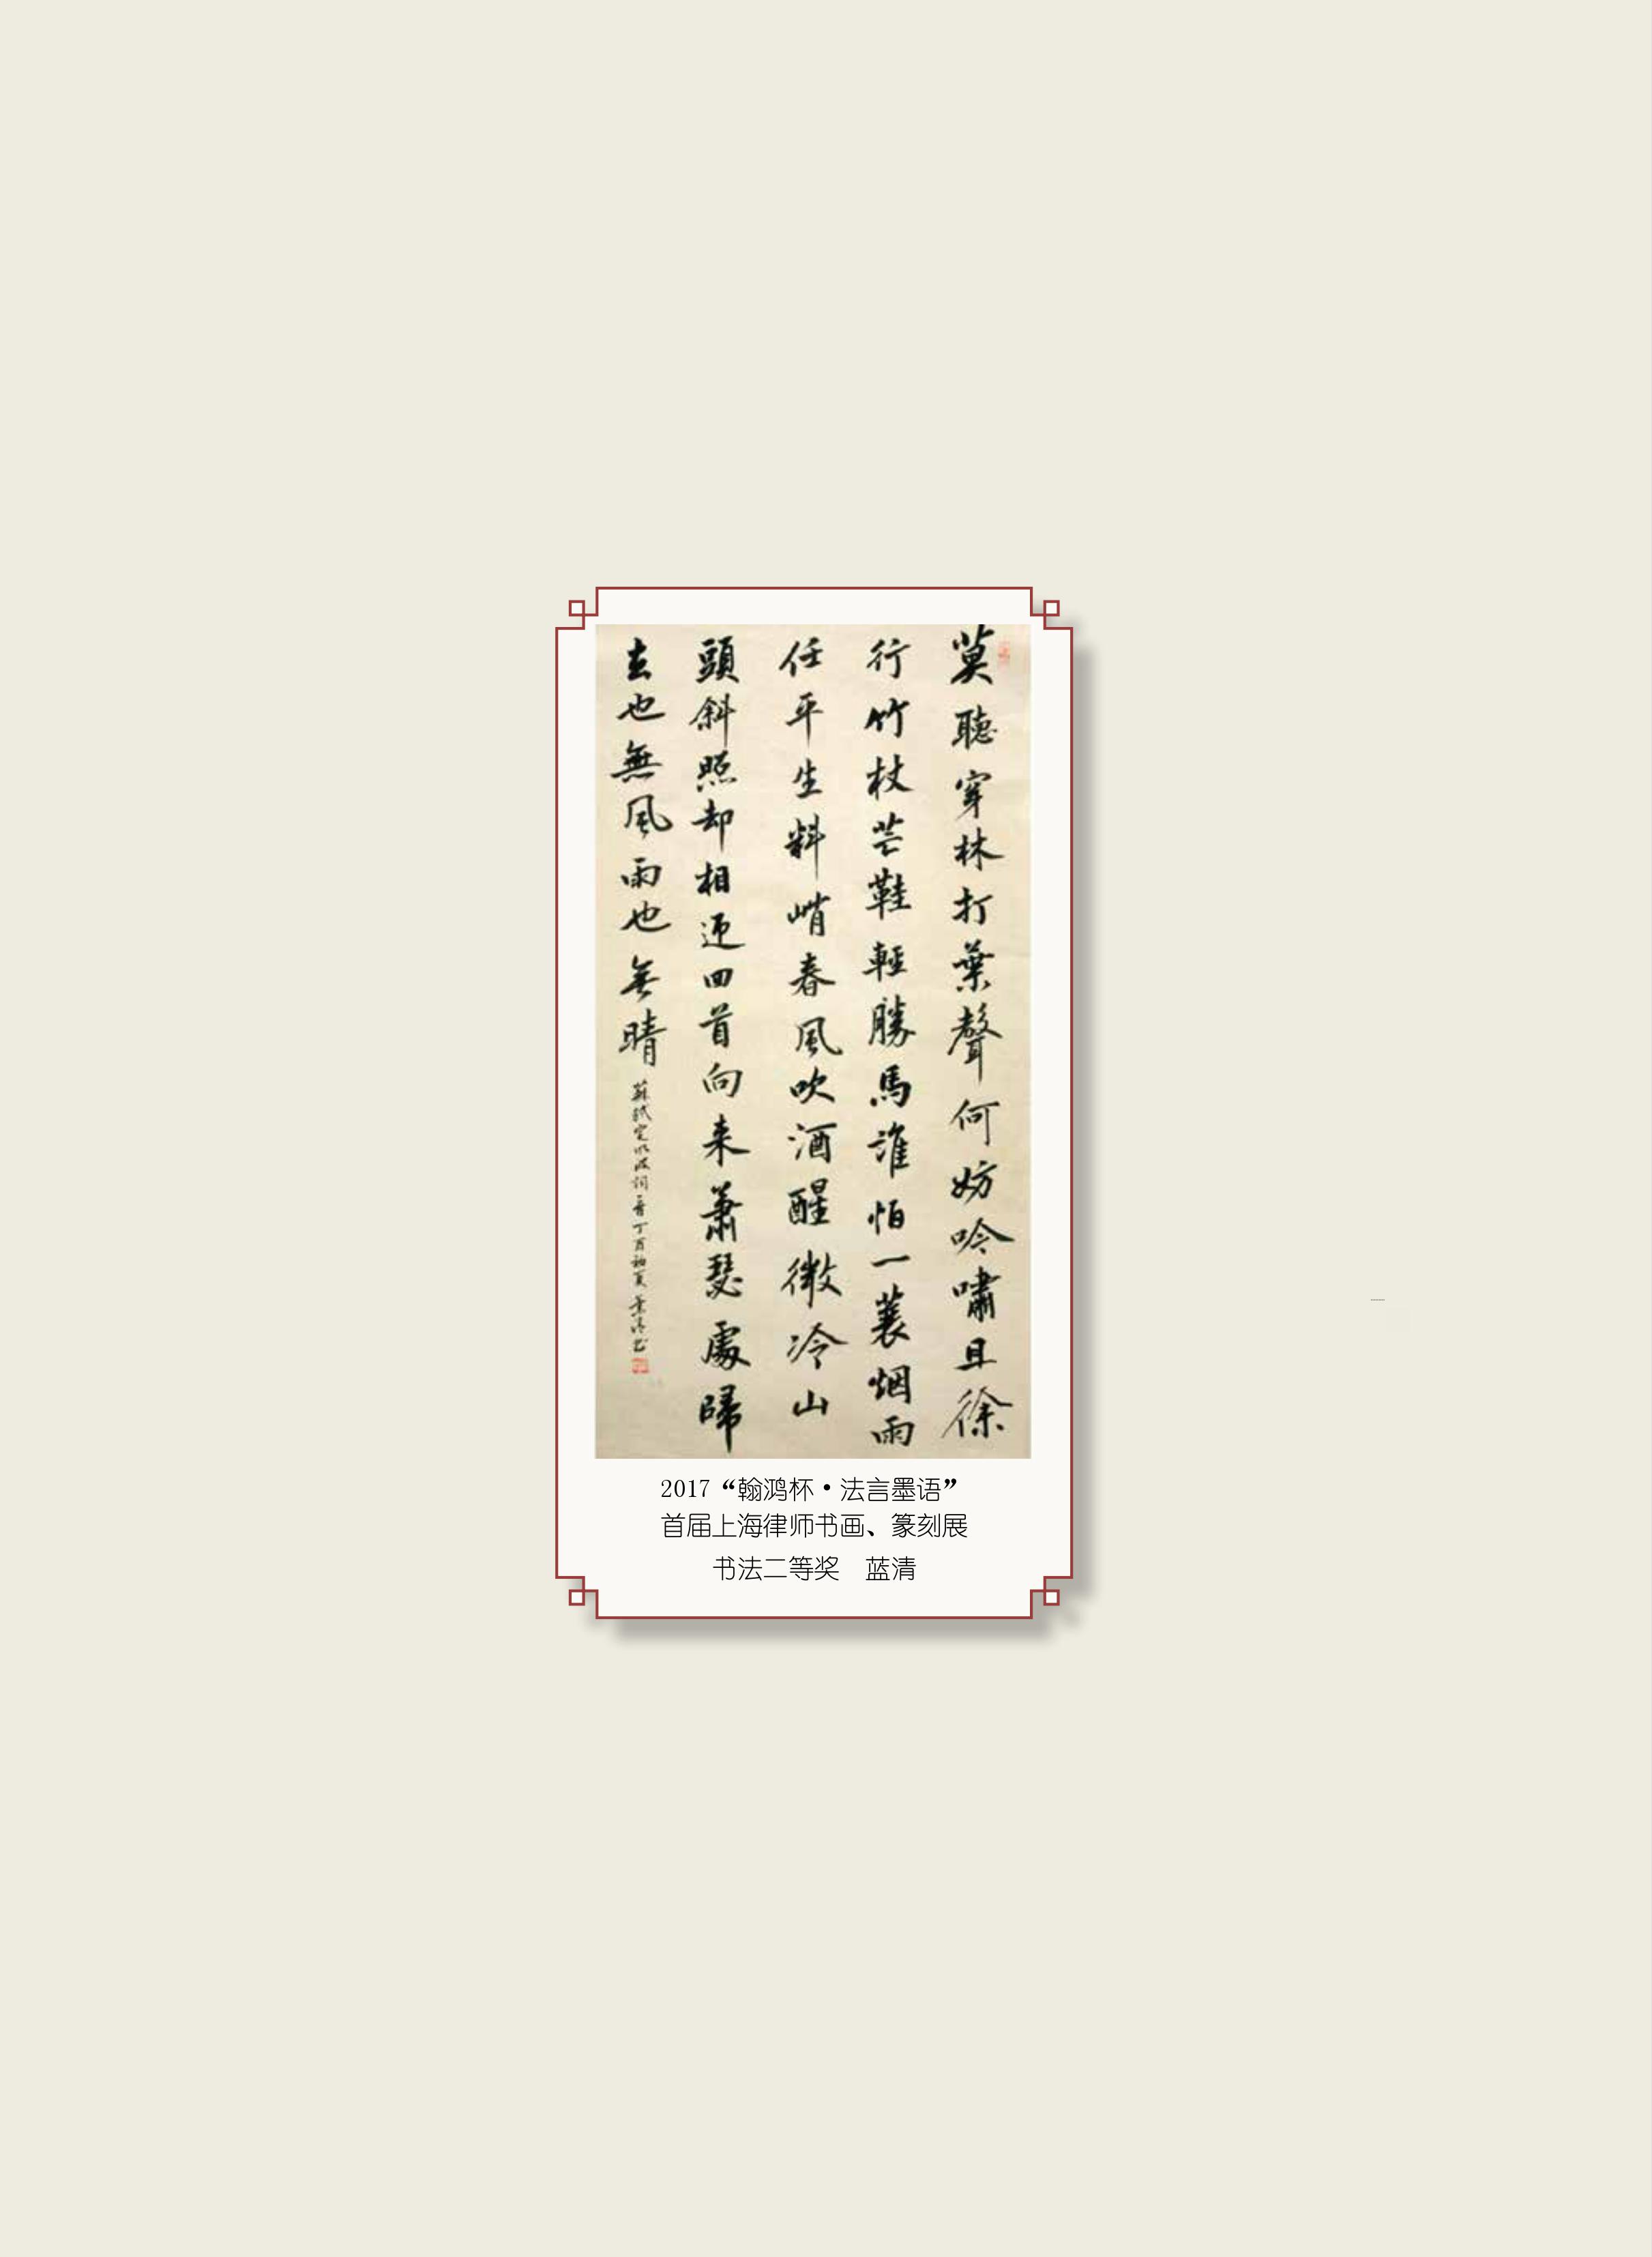 莫聽穿林打葉聲何妨吟嘯且徐
行竹杖芒鞋輕勝馬誰怕一蓑烟雨
任平生料峭春風吹酒醒微冷山
頭斜照却相迎回首向来蕭瑟處歸
去也無風雨也無晴
蘇軾定風波詞一首丁酉初夏
2017“翰鸿杯·法言墨语”
首届上海律师书画、篆刻展
书法二等奖 蓝清